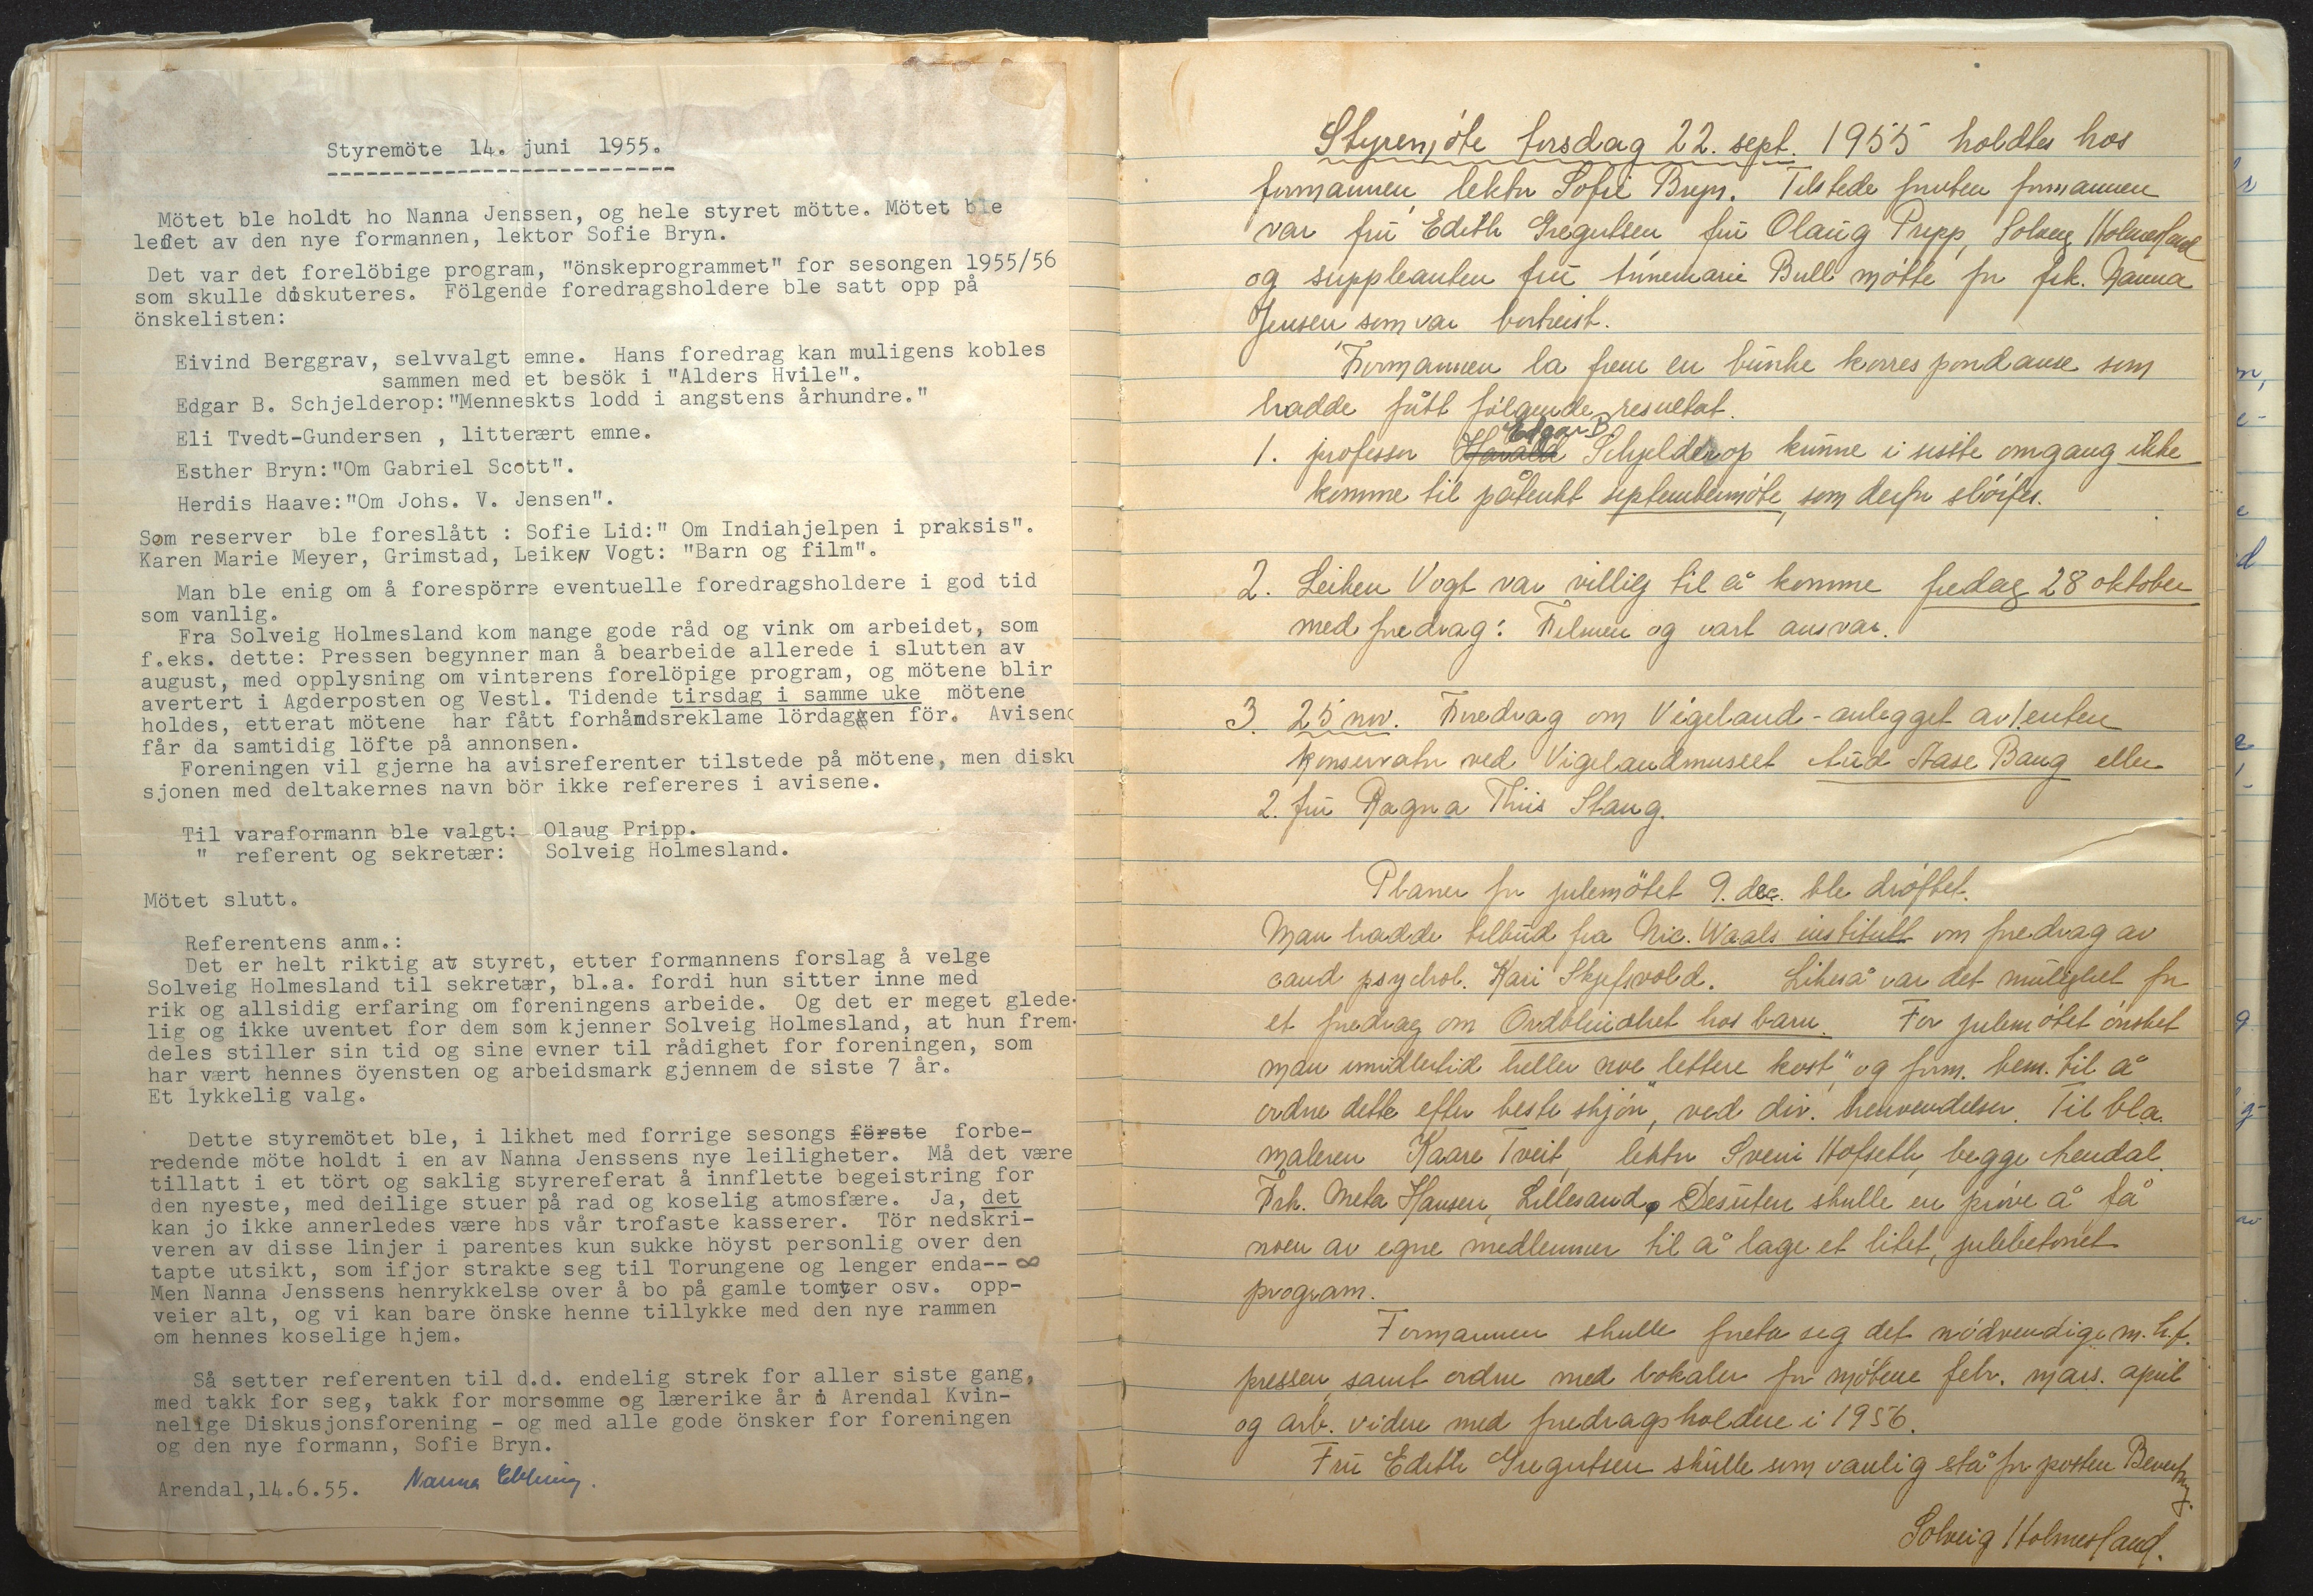 Styremöte 14. juni 1955.
Mötet ble holdt ho Nanna Jenssen, og hele styret mötte. Mötet ble
ledet av den nye formannen, lektor Sofie Bryn.
Det var det forelöbige program, "önskeprogrammet" for sesongen 1955/56
som skulle diskuteres. Fölgende foredragsholdere ble satt opp på
önskelisten:
Eivind Berggrav, selvvalgt emne. Hans foredrag kan muligens kobles
sammen med et besök i "Alders Hvile".
Edgar B. Schjelderop:"Menneskts lodd i angstens århundre."
Eli Tvedt-Gundersen , litterært emne.
Esther Bryn:"Om Gabriel Scott".
Herdis Haave:"Om Johs. V. Jensen".
Som reserver ble foreslått : Sofie Lid:" Om Indiahjelpen i praksis".
Karen Marie Meyer, Grimstad, Leiken Vogt: "Barn og film".
Man ble enig om å forespörre eventuelle foredragsholdere i god tid
som vanlig.
Fra Solveig Holmesland kom mange gode råd og vink om arbeidet, som
f.eks. dette: Pressen begynner man å bearbeide allerede i slutten av
august, med opplysning om vinterens forelöpige program, og mötene blir
avertert i Agderposten og Vestl. Tidende tirsdag i samme uke mötene
holdes, etterat mötene har fått forhåndsreklame lördagen för. Avisene
får da samtidig löfte på annonsen.
Foreningen vil gjerne ha avisreferenter tilstede på mötene, men disku
sjonen med deltakernes navn bör ikke refereres i avisene.
Til varaformann ble valgt: Olaug Pripp.
" referent og sekretær: Solveig Holmesland.
Mötet slutt.
Referentens anm.:
Det er helt riktig at styret, etter formannens forslag å velge
Solveig Holmesland til sekretær, bl.a. fordi hun sitter inne med
rik og allsidig erfaring om foreningens arbeide. Og det er meget glede-
lig og ikke uventet for dem som kjenner Solveig Holmesland, at hun frem-
deles stiller sin tid og sine evner til rådighet for foreningen, som
har vært hennes öyensten og arbeidsmark gjennem de siste 7 år.
Et lykkelig valg.
Dette styremötet ble, i likhet med forrige sesongs förste forbe-
redende möte holdt i en av Nanna Jenssens nye leiligheter. Må det være
tillatt i et tört og saklig styrereferat å innflette begeistring for
den nyeste, med deilige stuer på rad og koselig atmosfære. Ja, det
kan jo ikke annerledes være hos vår trofaste kasserer. Tör nedskri-
veren av disse linjer i parentes kun sukke höyst personlig over den
tapte utsikt, som ifjor strakte seg til Torungene og lenger enda-- ∞
Men Nanna Jenssens henrykkelse over å bo på gamle tomter osv. opp-
veier alt, og vi kan bare önske henne tillykke med den nye rammen
om hennes koselige hjem.
Så setter referenten til d.d. endelig strek for aller siste gang,
med takk for seg, takk for morsomme og lærerike år i Arendal Kvin-
nelige Diskusjonsforening - og med alle gode önsker for foreningen
og den nye formann, Sofie Bryn.
Arendal,14.6.55. Nanna Ebbing.
Styremöte torsdag 22. sept. 1955 holdtes hos
formannen, lektor Sofie Bryn. Tilstede foruten formannen
var fru Edith Gregertsen fru Olaug Pripp, Solveig Holmesland
og suppleanten fru Annemarie Bull mötte for frk. Nanna
Jensen som var bortreist.
Formannen la frem en bunke korrespondanse som
hadde fått fölgende resultat.
1. professor Harald Edgar B. Schjelderop kunne i siste omgang ikke
komme til påtenkt septembermöte, som derfor slöifes.
2. Leiken Vogt var villig til å komme fredag 28 oktober
med foredrag: Filmen og vart ansvar.
3. 25 nov. Foredrag om Vigeland-anlegget av 1. enten
konservator ved Vigelandmuseet Aud Aase Bang eller
2. fru Ragna Thiis Stang.
Planer for julemötet 9. dec. ble dröftet.
Man hadde tilbud fra Nic. Waals institutt om foredrag av
cand psychol. Kari Skjefsvold. Likeså var det mulighet for
et foredrag om Ordblindhet hos barn. For julemötet önsket
man imidlertid heller noe "lettere kost", og form. bem. til å
ordne dette efter "beste skjön", ved div. henvendelser. Til bl.a.
maleren Kaare Tveit, lektor Svein Hofseth, begge Arendal
Frk. Meta Hansen, Lillesand, Desuten skulle en pröve å få
noen av egne medlemmer til å lage et litet, julebetonet
program.
Formannen skulle foreta seg det nödvendige m.h.t.
pressen, samt ordne med lokaler for mötene febr. mars. april
og arb. videre med foredragsholdere i 1956.
Fru Edith Gregertsen skulle som vanlig stå for posten Bevertning.
Solveig Holmesland.